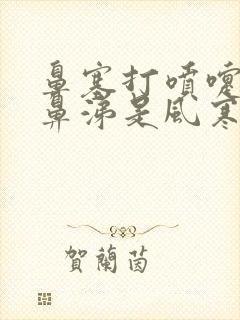 鼻塞打噴嚏
鼻涕是風寒
賀蘭茵